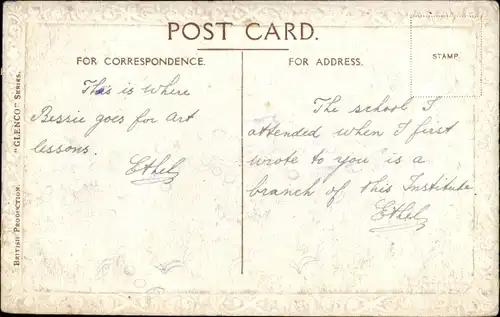 POST CARD.
FOR CORRESPONDENCE.
FOR ADDRESS.
STAMP.
"GLENCO" SERIES.
BRITISH PRODUCTION.
This is where
Bessie goes for art
lessons.
Ethel
The school I
attended when I first
wrote to you is a
branch of this Institute.
Ethel